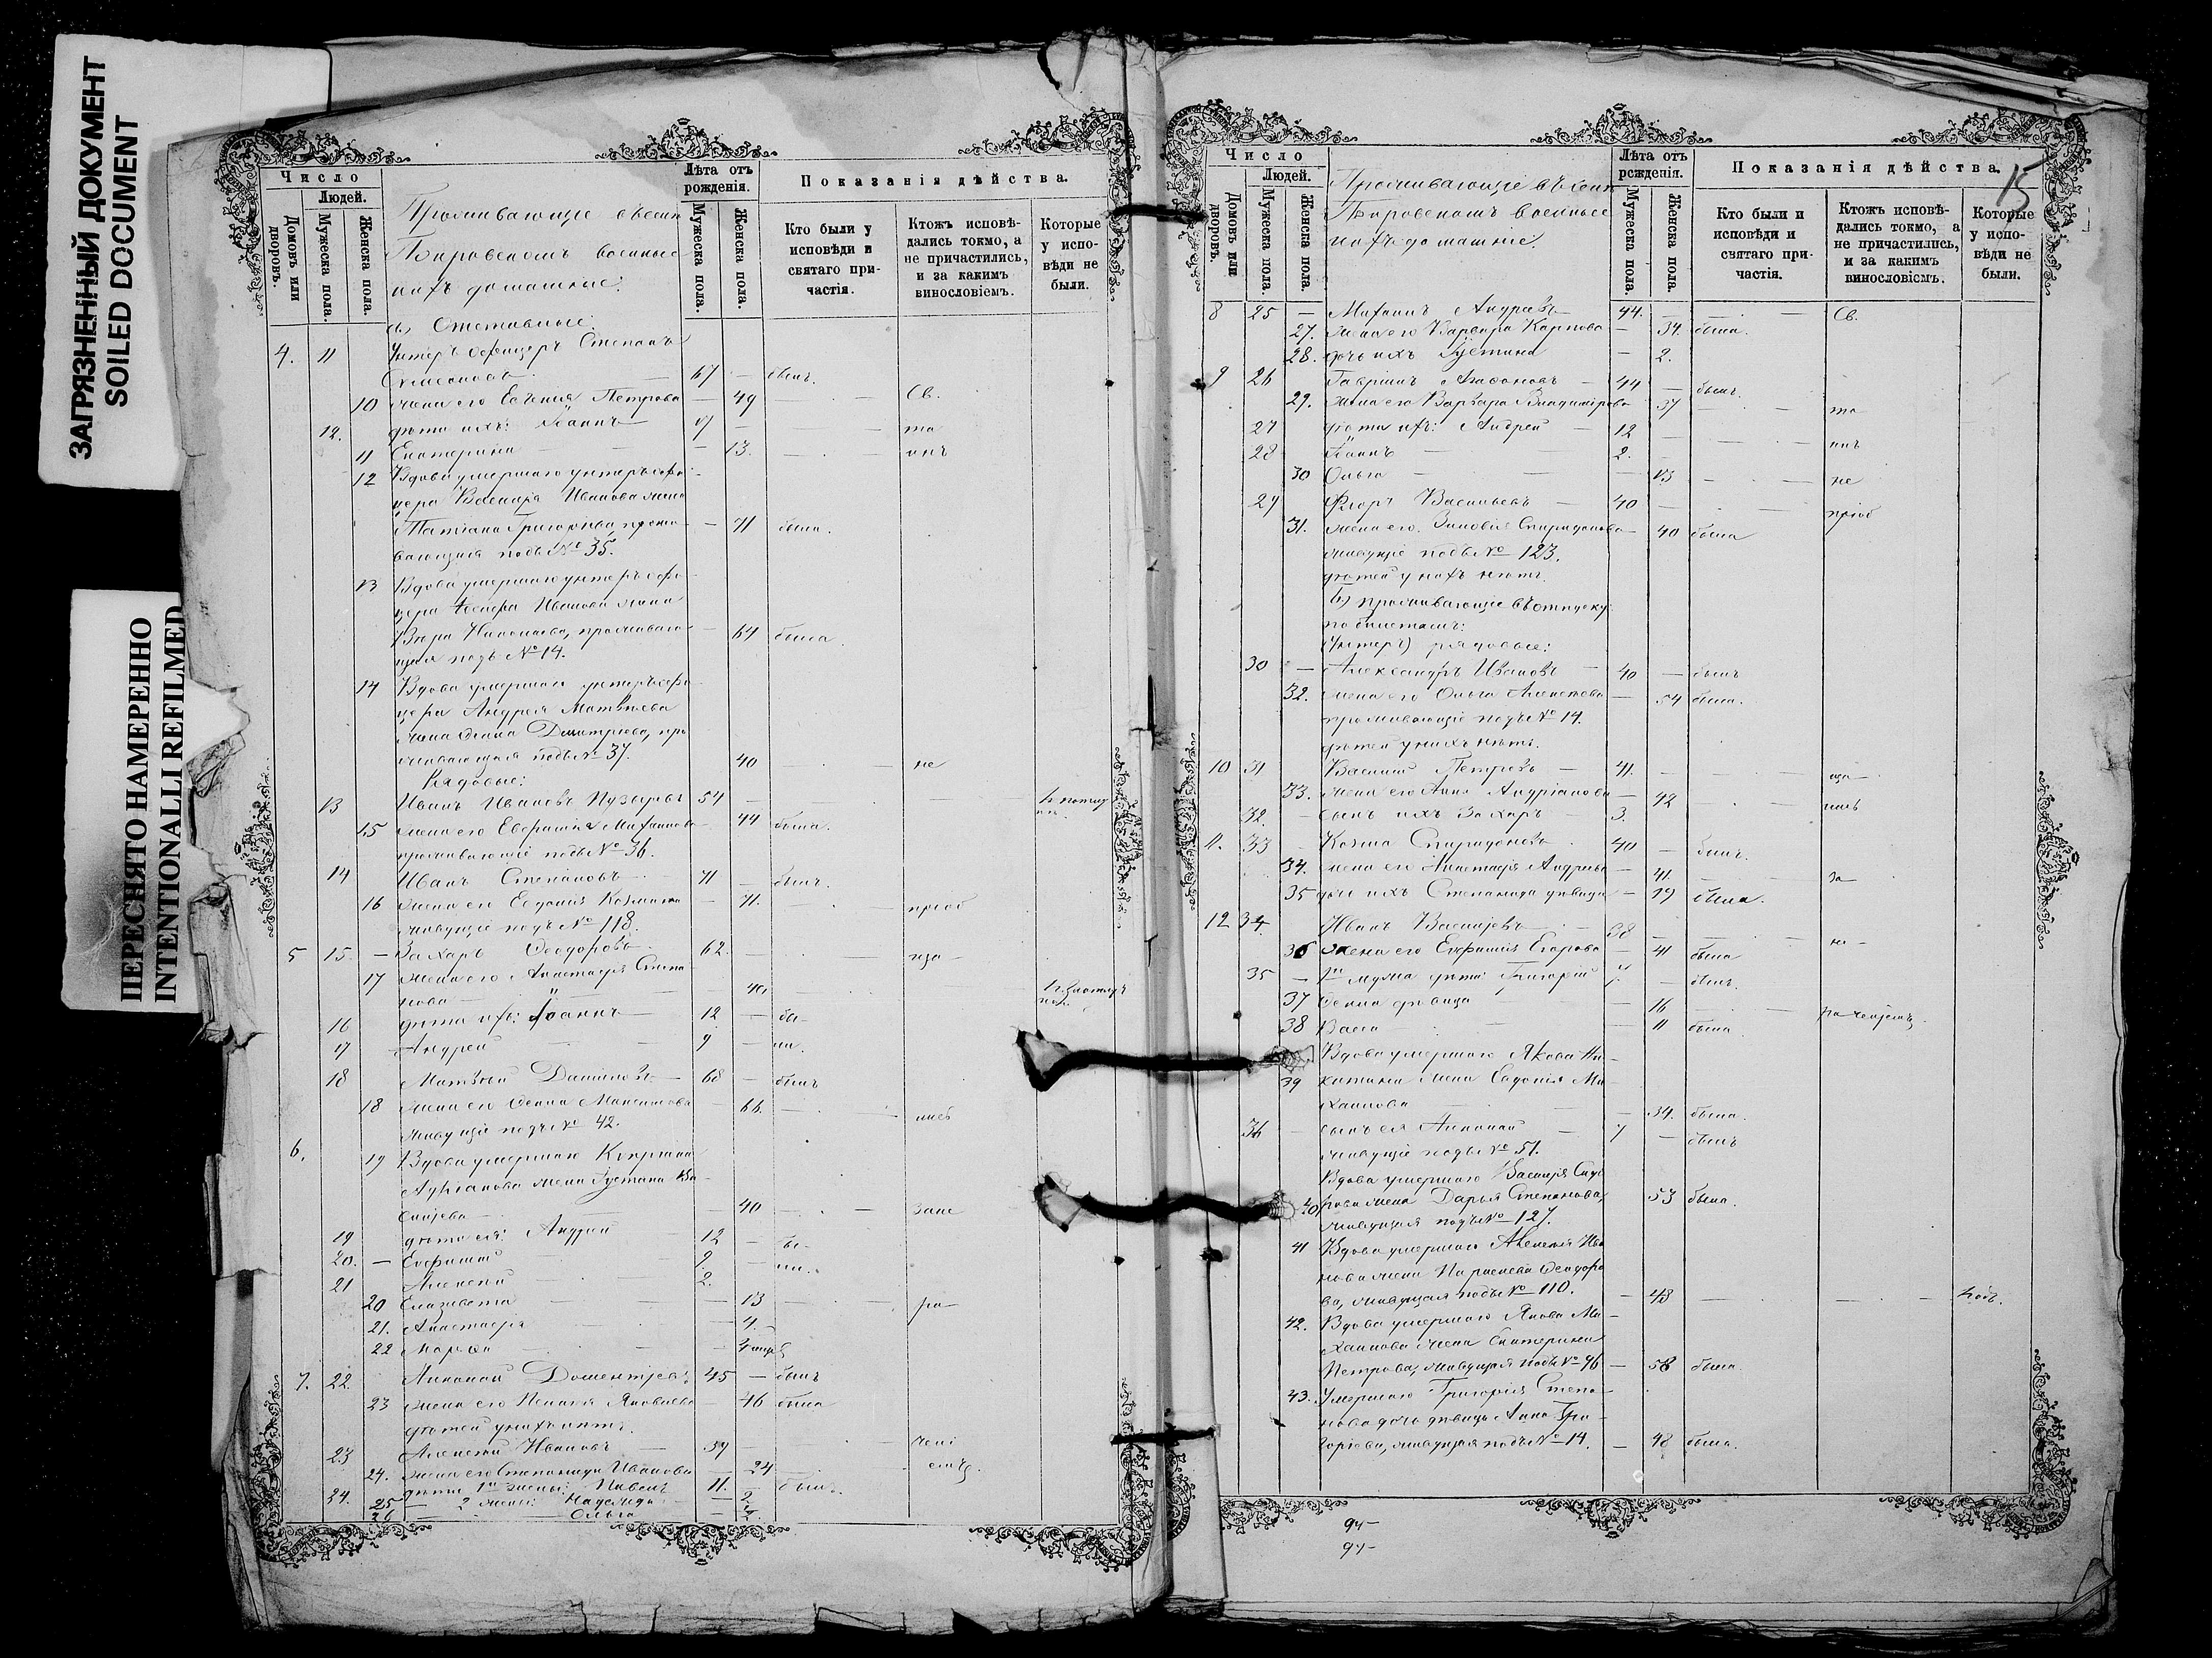 ЗАГРЯЗНЕННЫЙ ДОКУМЕНТ
SOILED DOCUMENT
ПЕРЕСНЯТО НАМЕРЕННО
INTENTIONALLI REFILMED
Число
Людей.
Домовъ или дворовъ.
Мужеска пола.
Женска пола.
Проживающіе въ селѣ
военные
ихъ домашніе.
Лѣта отъ рожденія.
Мужеска пола.
Женска пола.
Показанія дѣйства.
Кто были у исповѣди и святаго причастія.
Ктожъ исповѣдались токмо, а не причастились, и за какимъ винословіемъ.
Которые у исповѣди не были.
а) Отставные:
4. 11 Унтеръ офицеръ Степанъ
67 — былъ.
10 жена его Евгенія Петрова — 49 — Св.
12. дѣти ихъ: Іоаннъ — та
11 Екатерина — 13. —
12 Вдова умершаго унтеръ офи-
цера Василія Иванова жена
Татіана Григорьева, прожи- — 71 была.
вающая подъ № 35.
13 Вдова умершаго унтеръ офи-
цера Иванова жена
Вѣра Николаева, проживаю- — 64 была
щая подъ № 14.
14 Вдова умершаго унтеръ офи-
цера Андрея Матвѣева
жена Димитріева, про
живающая подъ № 37. 40 — не
Рядовые:
13 Иванъ Ивановъ Пузыревъ 54 —
15 жена его Евфимія Михаилова — 44 была.
проживающіе подъ № 36.
14 Иванъ Степановъ 71 — былъ.
16 жена его Евдокія Козмина — 71. — пріоб
живущіе подъ № 118.
5 15. — Захаръ Ѳеодоровъ 62. — ща-
17 жена его Анастасія Степа-
нова — 40, —
16 дѣти ихъ: Іоаннъ — 12 — бы-
17 Андрей — 9 — ли.
18 Матвѣй Даниловъ — 68 — былъ
18 жена его Максимова 66. —
живущіе подъ № 42.
6. 19 Вдова умершаго Кипріана
жена Іустина Ва-
силіева — 40 —
19 дѣти ея: Андрей — 12 — бы-
20. — Евфимій — 9. — ли.
21 Алексій — 2.
20 Елизавета — 13 — ра-
21. Анастасія — 4.
22 Марѳа —
7. 22. Дометіевъ 45 — былъ
23 жена его Пелагія Яковлева — 46 была
дѣтей у нихъ нѣтъ.
23 Алексій Ивановъ — 39 —
24. жена его Степанида Иванова — 24
24. дѣти 1й жены: Павелъ 11. — былъ.
25 — 2 жены: Надежда — 2
26 — Ольга —
15
Число
Людей.
Домовъ или дворовъ.
Мужеска пола.
Женска пола.
Проживающіе въ селѣ
военные
ихъ домашніе.
Лѣта отъ рожденія.
Мужеска пола.
Женска пола.
Показанія дѣйства.
Кто были и исповѣди и святаго причастія.
Ктожъ исповѣдались токмо, а не причастились, и за какимъ винословіемъ.
Которые у исповѣди не были.
8 25 — Михаилъ Андреевъ 44. — Св.
27. жена его Варвара Карпова — 34. была.
28. дочь ихъ Іустина — 2.
9 26 Гавріилъ Агаѳоновъ — 44 — былъ.
29. жена его Варвара Владимірова 37 — та
27 дѣти ихъ: Андрей — 12 —
28 Іоаннъ — 2. —
30 Ольга — 13 — не
29 Ѳеоръ Васильевъ — 40 — пріоб
31. жена его Зиновія Спиридонова — 40 была
живущіе подъ № 123.
дѣтей у нихъ нѣтъ.
б) проживающіе въ отпуску
по билетамъ:
(Унтеръ) рядовые:
30 — Александръ Ивановъ — 40 — былъ
32. жена его Ольга — 54 была.
проживающіе подъ № 14.
дѣтей у нихъ нѣтъ.
10 31 Василій Петровъ — 41. — ща-
33. жена его Анна Андріанова — 42 —
32. — сынъ ихъ Захаръ — 3.
11. 33 — Козма Спиридоновъ 40 — былъ.
34. жена его Анастасія Андреева — 41. — за-
35 дочь ихъ Степанида дѣвица — 19 была.
12 34 Иванъ Василіевъ — 38 —
36 жена его Евфимія Егорова — 41 была
35 — 1го мужа дѣти: Григорій — былъ.
37 дѣвица — 16 —
38 Васса — 11 была
Вдова умершаго Якова Ни-
39 китина жена Евдокія Ми-
хаилова — 34. была.
36 сынъ ея — 7 — былъ
живущіе подъ № 51.
Вдова умершаго Василія Сидо
40 рова жена Дарья Степанова, 53 была.
живущая подъ № 127.
41 Вдова умершаго Алексія Ива
нова жена Параскева Ѳеодоро
ва, живущая подъ № 110. — 48 —
42. Вдова умершаго Якова Ми-
хаилова жена Екатерина
Петрова, живущая подъ № 96 — 58 была.
43. Умершаго Григорія Степа-
нова дочь дѣвица Анна Гри-
горіева, живущая подъ № 14. — 48 была.